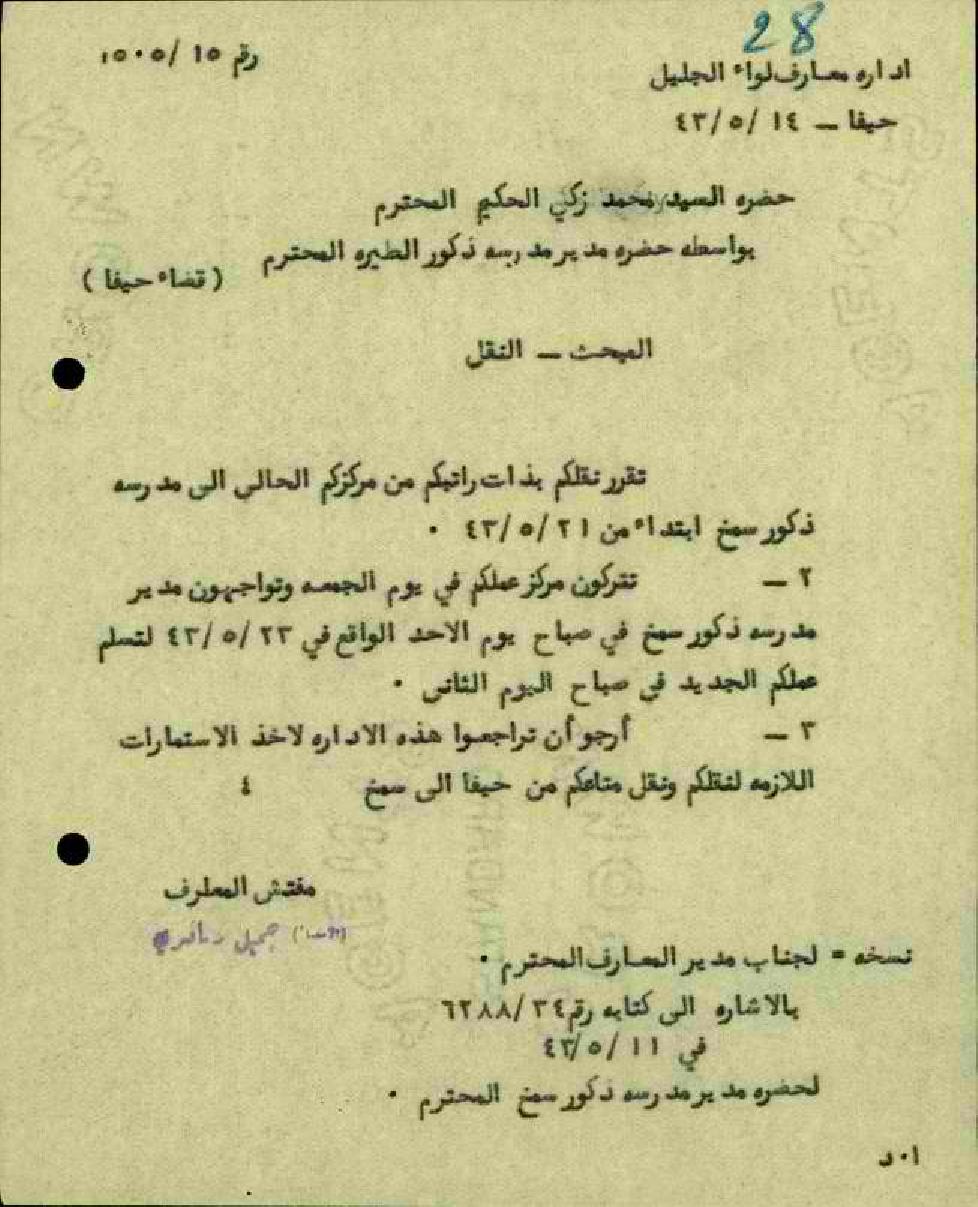 28
رقم ١٥ /١٥٠٥
اداره معارف لواء الجليل
حيفا ــ ١٤ /٤٣/٥
حضره السيد محمد زكي الحكيم المحترم
بواسطه حضره مدير مدرسه ذكور الطيره المحترم
( قضاء حيفا )
المبحث ــ النقل
تقرر نقلكم بذات راتبكم من مركزكم الحالى الى مدرسه
ذكور سمخ ابتداء من ٢١ /٤٣/٥ ٠
٢ ــ تتركون مركز عملكم في يوم الجمعه وتواجهون مدير
مدرسه ذكور سمخ في صباح يوم الاحد الواقع في ٢٣ /٤٣/٥ لتسلم
عملكم الجديد فى صباح اليوم الثانى ٠
٣ ــ أرجو أن تراجعوا هذه الاداره لاخذ الاستمارات
اللازمه لنقلكم ونقل متاعكم من حيفا الى سمخ ٤
مفتش المعلرف
جميل
نسخه = لجناب مدير المعارف المحترم ٠
بالاشاره الى كتابه رقم ٣٤ /٦٢٨٨
في ١١ /٤٣/٥
لحضره مدير مدرسه ذكور سمخ المحترم ٠
ا٠د